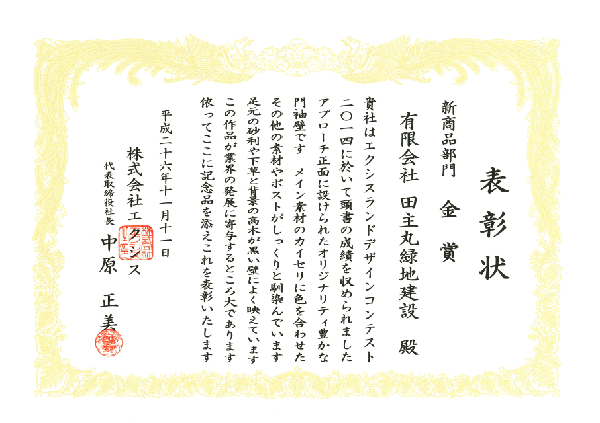 表彰状
新商品部門 金賞
有限会社 田主丸緑地建設 殿
貴社はエクシスランドデザインコンテスト
二〇一四に於いて頭書の成績を収められました
アプローチ正面に設けられたオリジナリティ豊かな
門袖壁です メイン素材のカイセリに色を合わせた
その他の素材やポストがしっくりと馴染んでいます
足元の砂利や下草と背景の高木が黒い壁によく映えています
この作品が業界の発展に寄与するところ大であります
依ってここに記念品を添えこれを表彰いたします
平成二十六年十一月十一日
株式会社エクシス
代表取締役社長 中原 正美